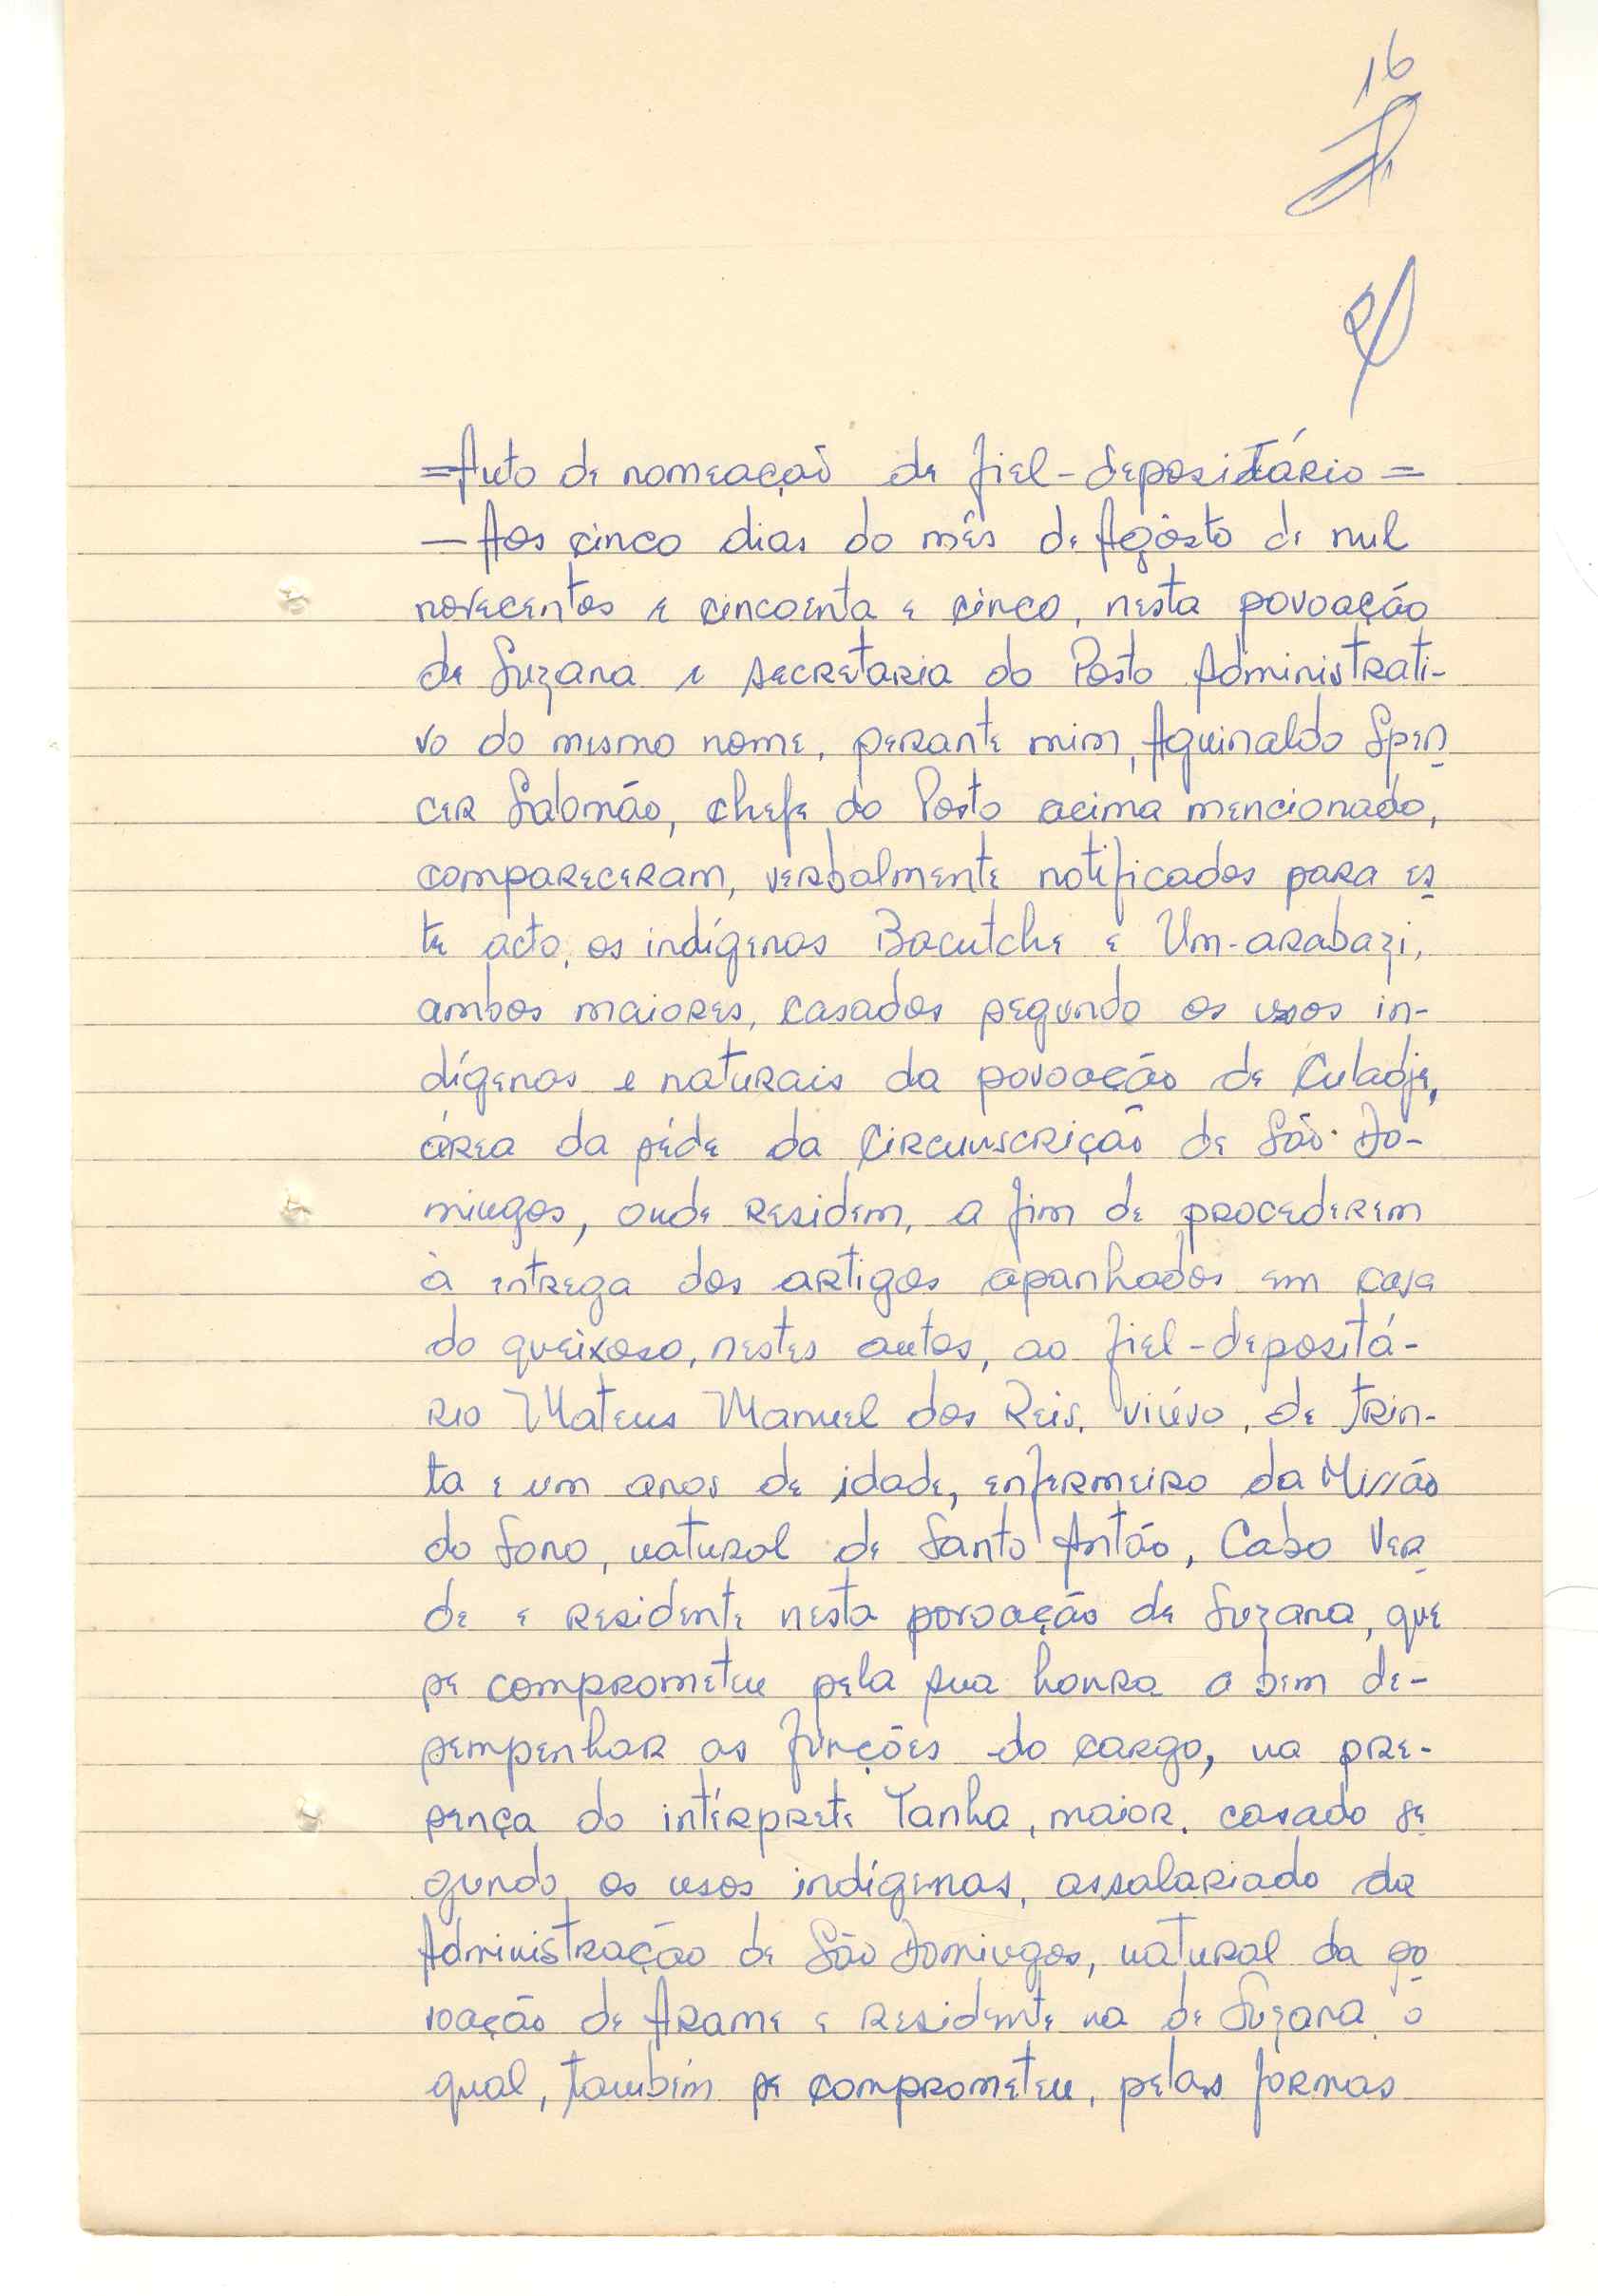 16
=Auto de nomeação de fiel-depositário=
—Aos cinco dias do mês de Agôsto de mil
novecentos e cincoenta e cinco, nesta povoação
de Suzana e secretaria do Posto Administrati-
vo do mesmo nome, perante mim, Aguinaldo Spen
cer Salomão, chefe do Posto acima mencionado,
compareceram, verbalmente notificados para es
te acto, os indígenas Bacutche e Um-arabazi,
ambos maiores, casados segundo os usos in-
dígenas e naturais da povoação de Culadje,
área da séde da Circunscrição de São Do-
mingos, onde residem, a fim de procederem
à entrega dos artigos apanhados em casa
do queixoso, nestes autos, ao fiel-depositá-
rio Mateus Manuel dos Reis, viúvo, de trin-
ta e um anos de idade, enfermeiro da Missão
do Sono, natural de Santo Antão, Cabo Ver
de e residente nesta povoação de Suzana, que
se comprometeu pela sua honra a bem de-
sempenhar as funções do cargo, na pre-
sença do intérprete Tanha, maior, casado se
gundo os usos indígenas, assalariado da
Administração de São Domingos, natural da po
voação de Arame e residente na de Suzana, o
qual, também se comprometeu, pelas formas